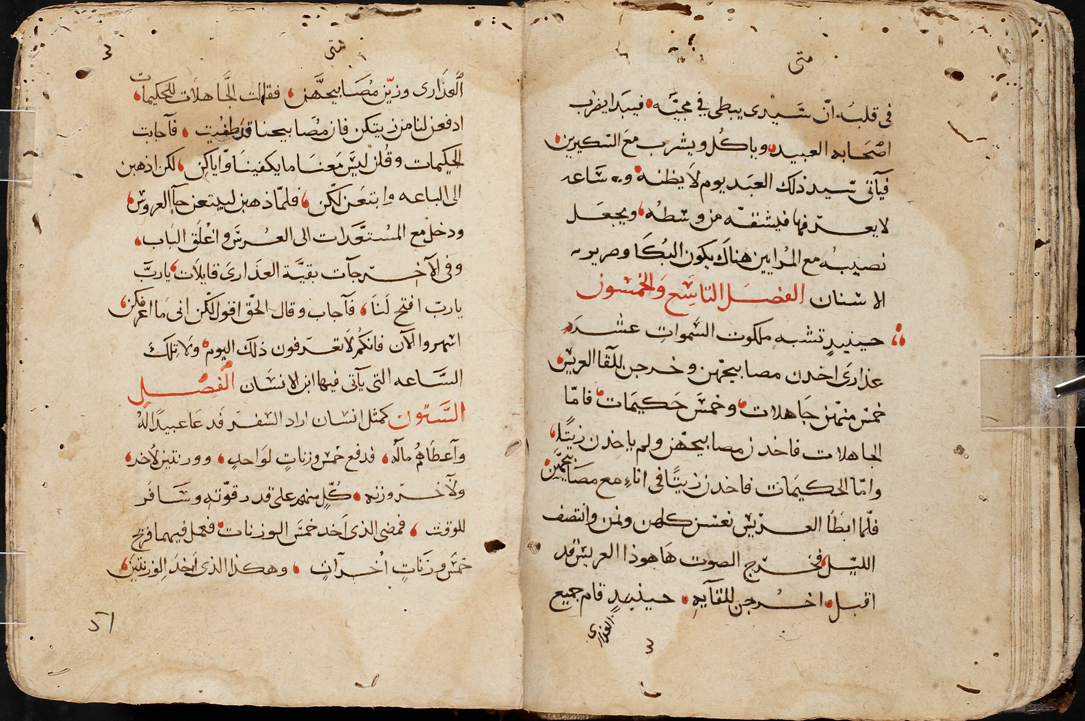 متى
في قلبه ان سيدى يبطى في مجيئه فيبدا يضرب
اصحابه العبيد وياكل ويشرب مع السكيرين
فيأتي سيد ذلك العبد يوم لا يظنه وساعه
لا يعرفها فيشقه من وسطه ويجعل
نصيبه مع المرايين هناك يكون البكا وصرير
الاسنان الفصل التاسع والخمسون
حينيدٍ تشبه ملكوت السموات عشرة
عذارى اخدن مصابيحهن وخرجن للقا العريس
خمس منهن جاهلات وخمس حكيمات فامّا
الجاهلات فاخدن مصابيحهن ولم ياخدن زيتًا
وامّا الحكيمات فاخدن زيتًا في اناءٍ مع مصابيحهن
فلما ابطأ العريس نعسن كلهن ونمن وانتصف
الليل فخرج الصوت هاهوذا العريس قد
اقبل اخرجن للقآيه حينيدٍ قام جميع
العذارى
3
متى
3
العذارى وزيّن مصابيحهن فقالت الجاهلات للحكيمات
ادفعن لنا من زيتكن فان مصابيحنا قد طفيت فآجابت
الحكيمات وقلن ليس معنا ما يكفينا وٓاياكن لكن اذهبن
الى الباعه وابتعن لكن فلما ذهبن ليبتعن جآ العروس
ودخل مع المستعدات الى العرس واغلق الباب
وفي الآخر جآت بقيّة العذارى قايلات ياربّ
ياربّ افتح لنا فآجاب وقال الحق اقول لكن انى ما اعرفكن
اسهروا الآن فانكم لا تعرفون ذلك اليوم ولا تلك
الساعه التى يآتى فيها ابن الانسان الفصل
الستون كمثل انسان اراد السفر فدعا عبيدًا لهُ
وآعطاهم ماله فدفع خمس وزنات لواحدٍ ووزنتين لاخر
ولآخر وزنه كل منهم على قدر قوته وسافر
للوقت فمضى الذى اخد خمس الوزنات فعمل فيهما فربح
خمس وزناتٍ اخرآتٍ وهكدا الذى اخد الوزنتين
51